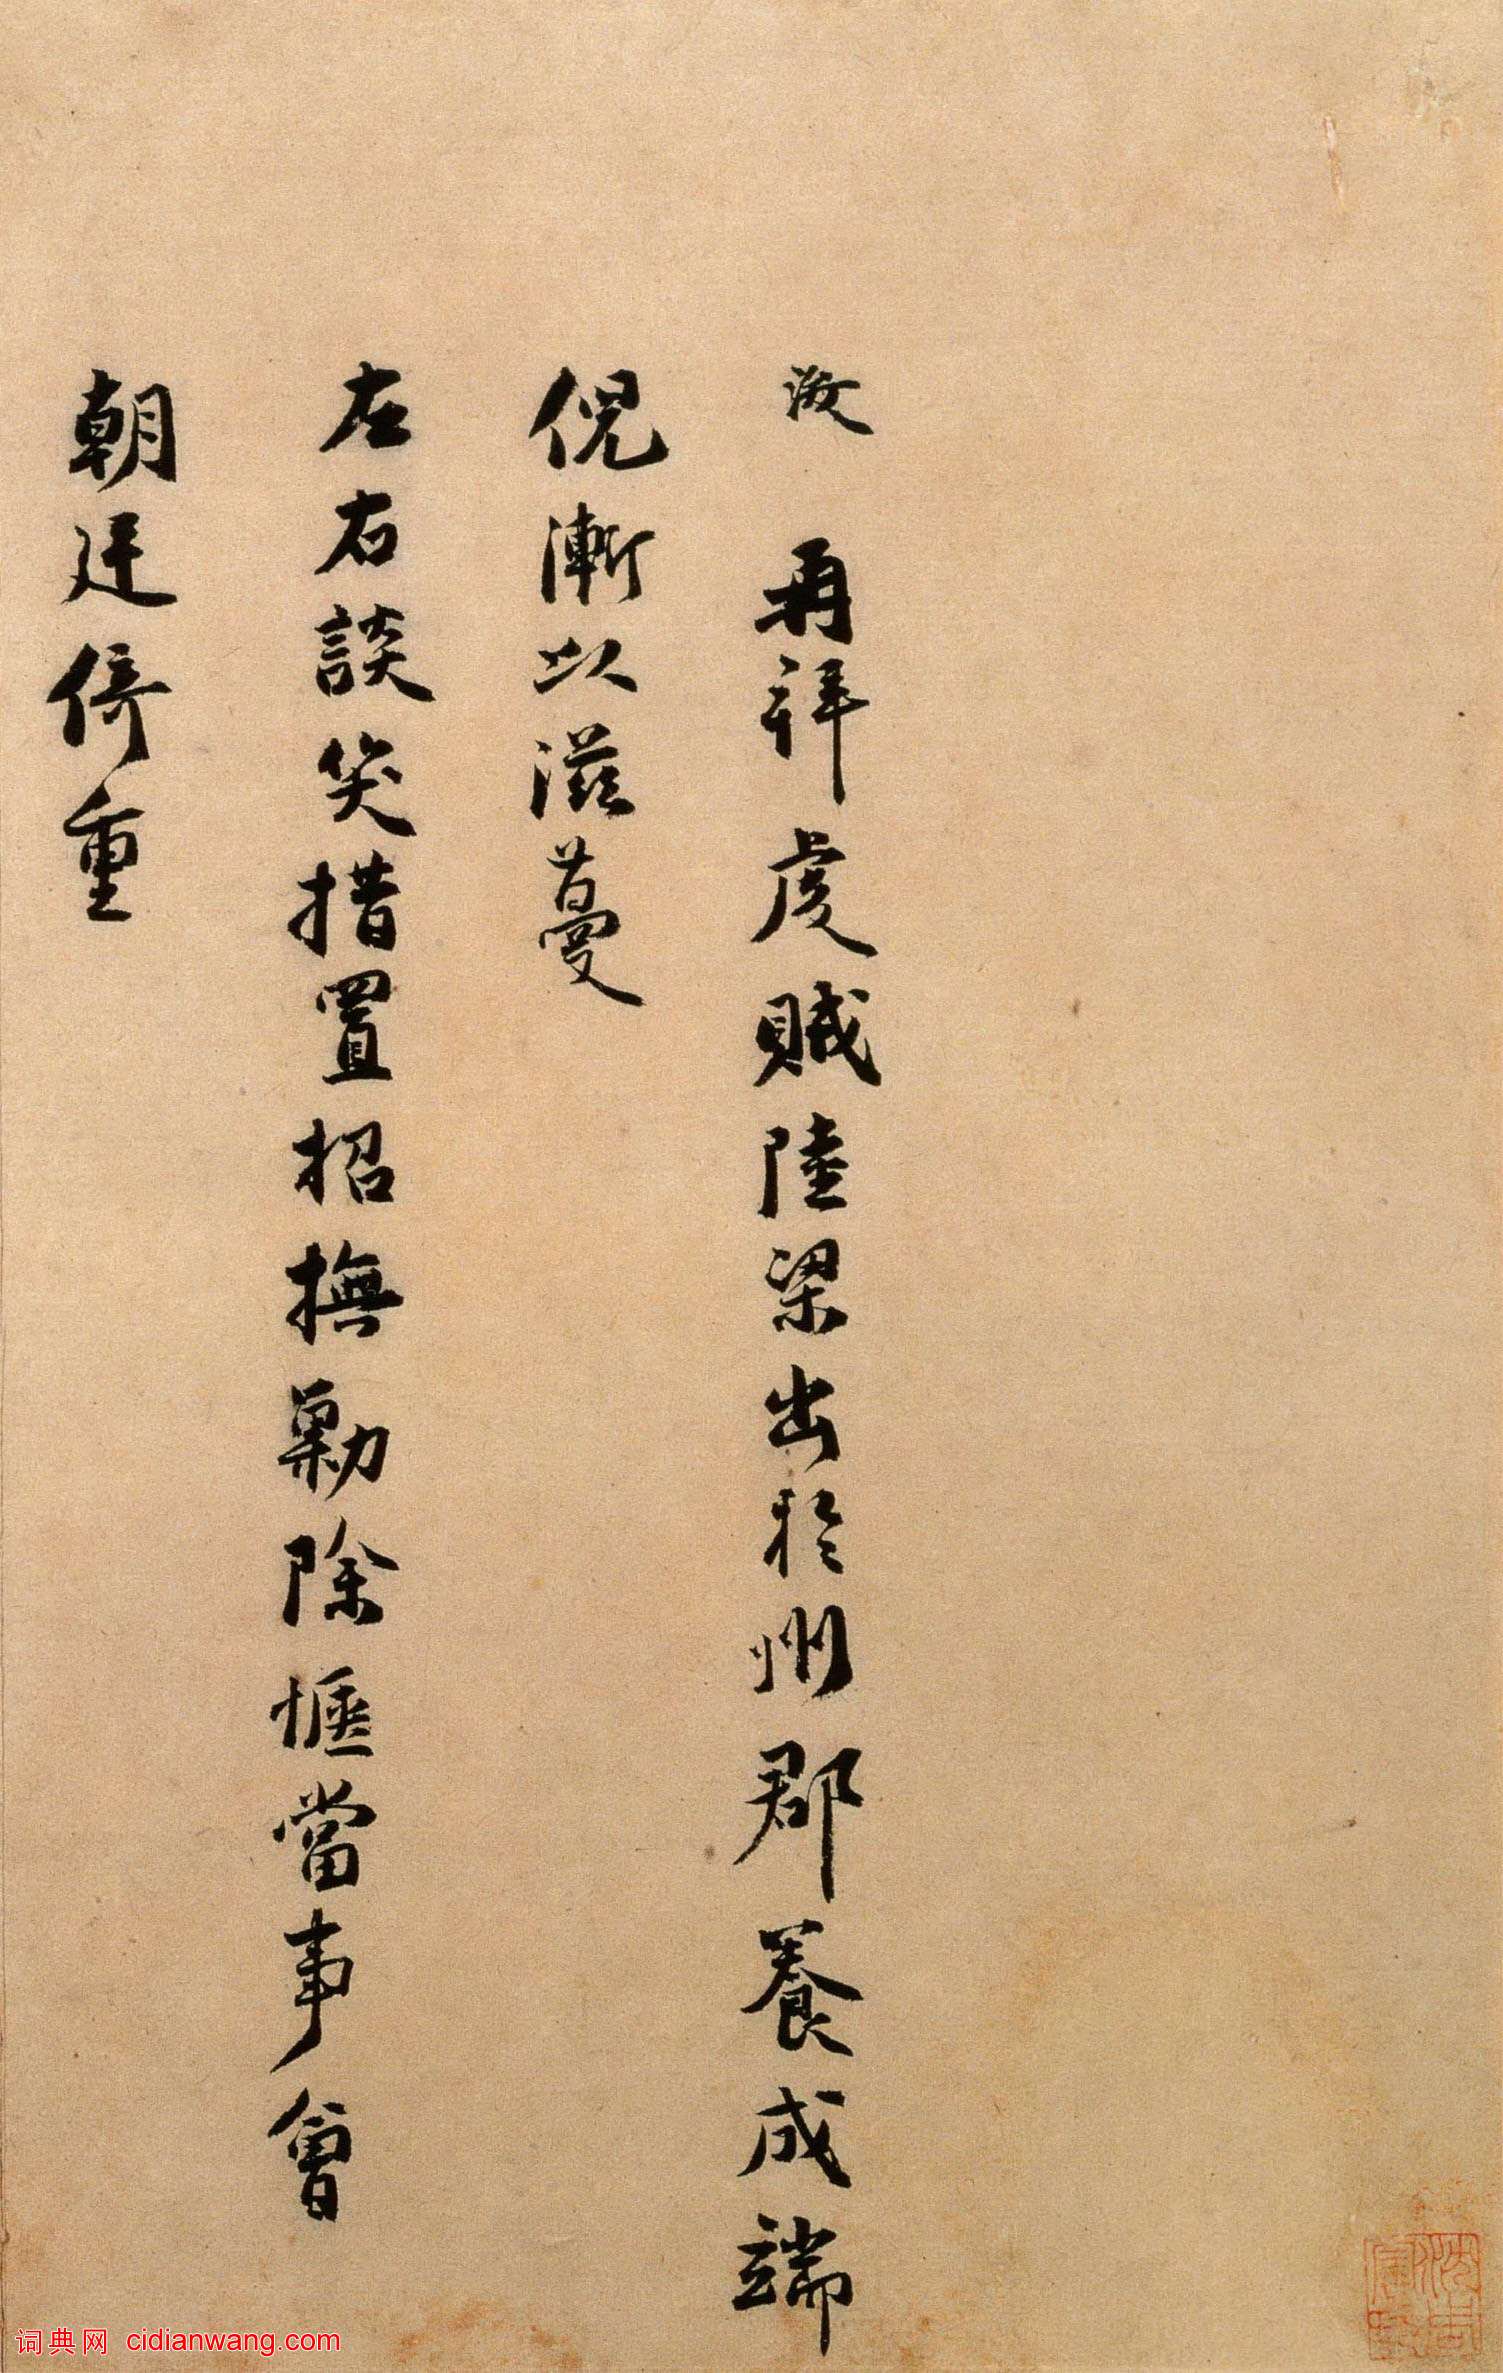 再拜虔賊陸梁出於州郡養成端
倪漸以滋蔓
左右談笑措置招撫勦除愜當事會
朝廷倚重
词典网 cidianwang.com